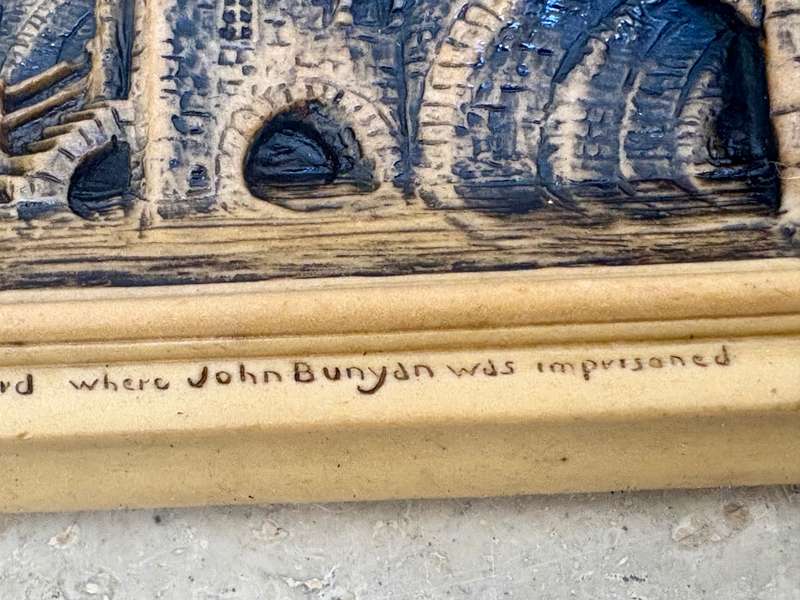 rd where John Bunyan was imprisoned